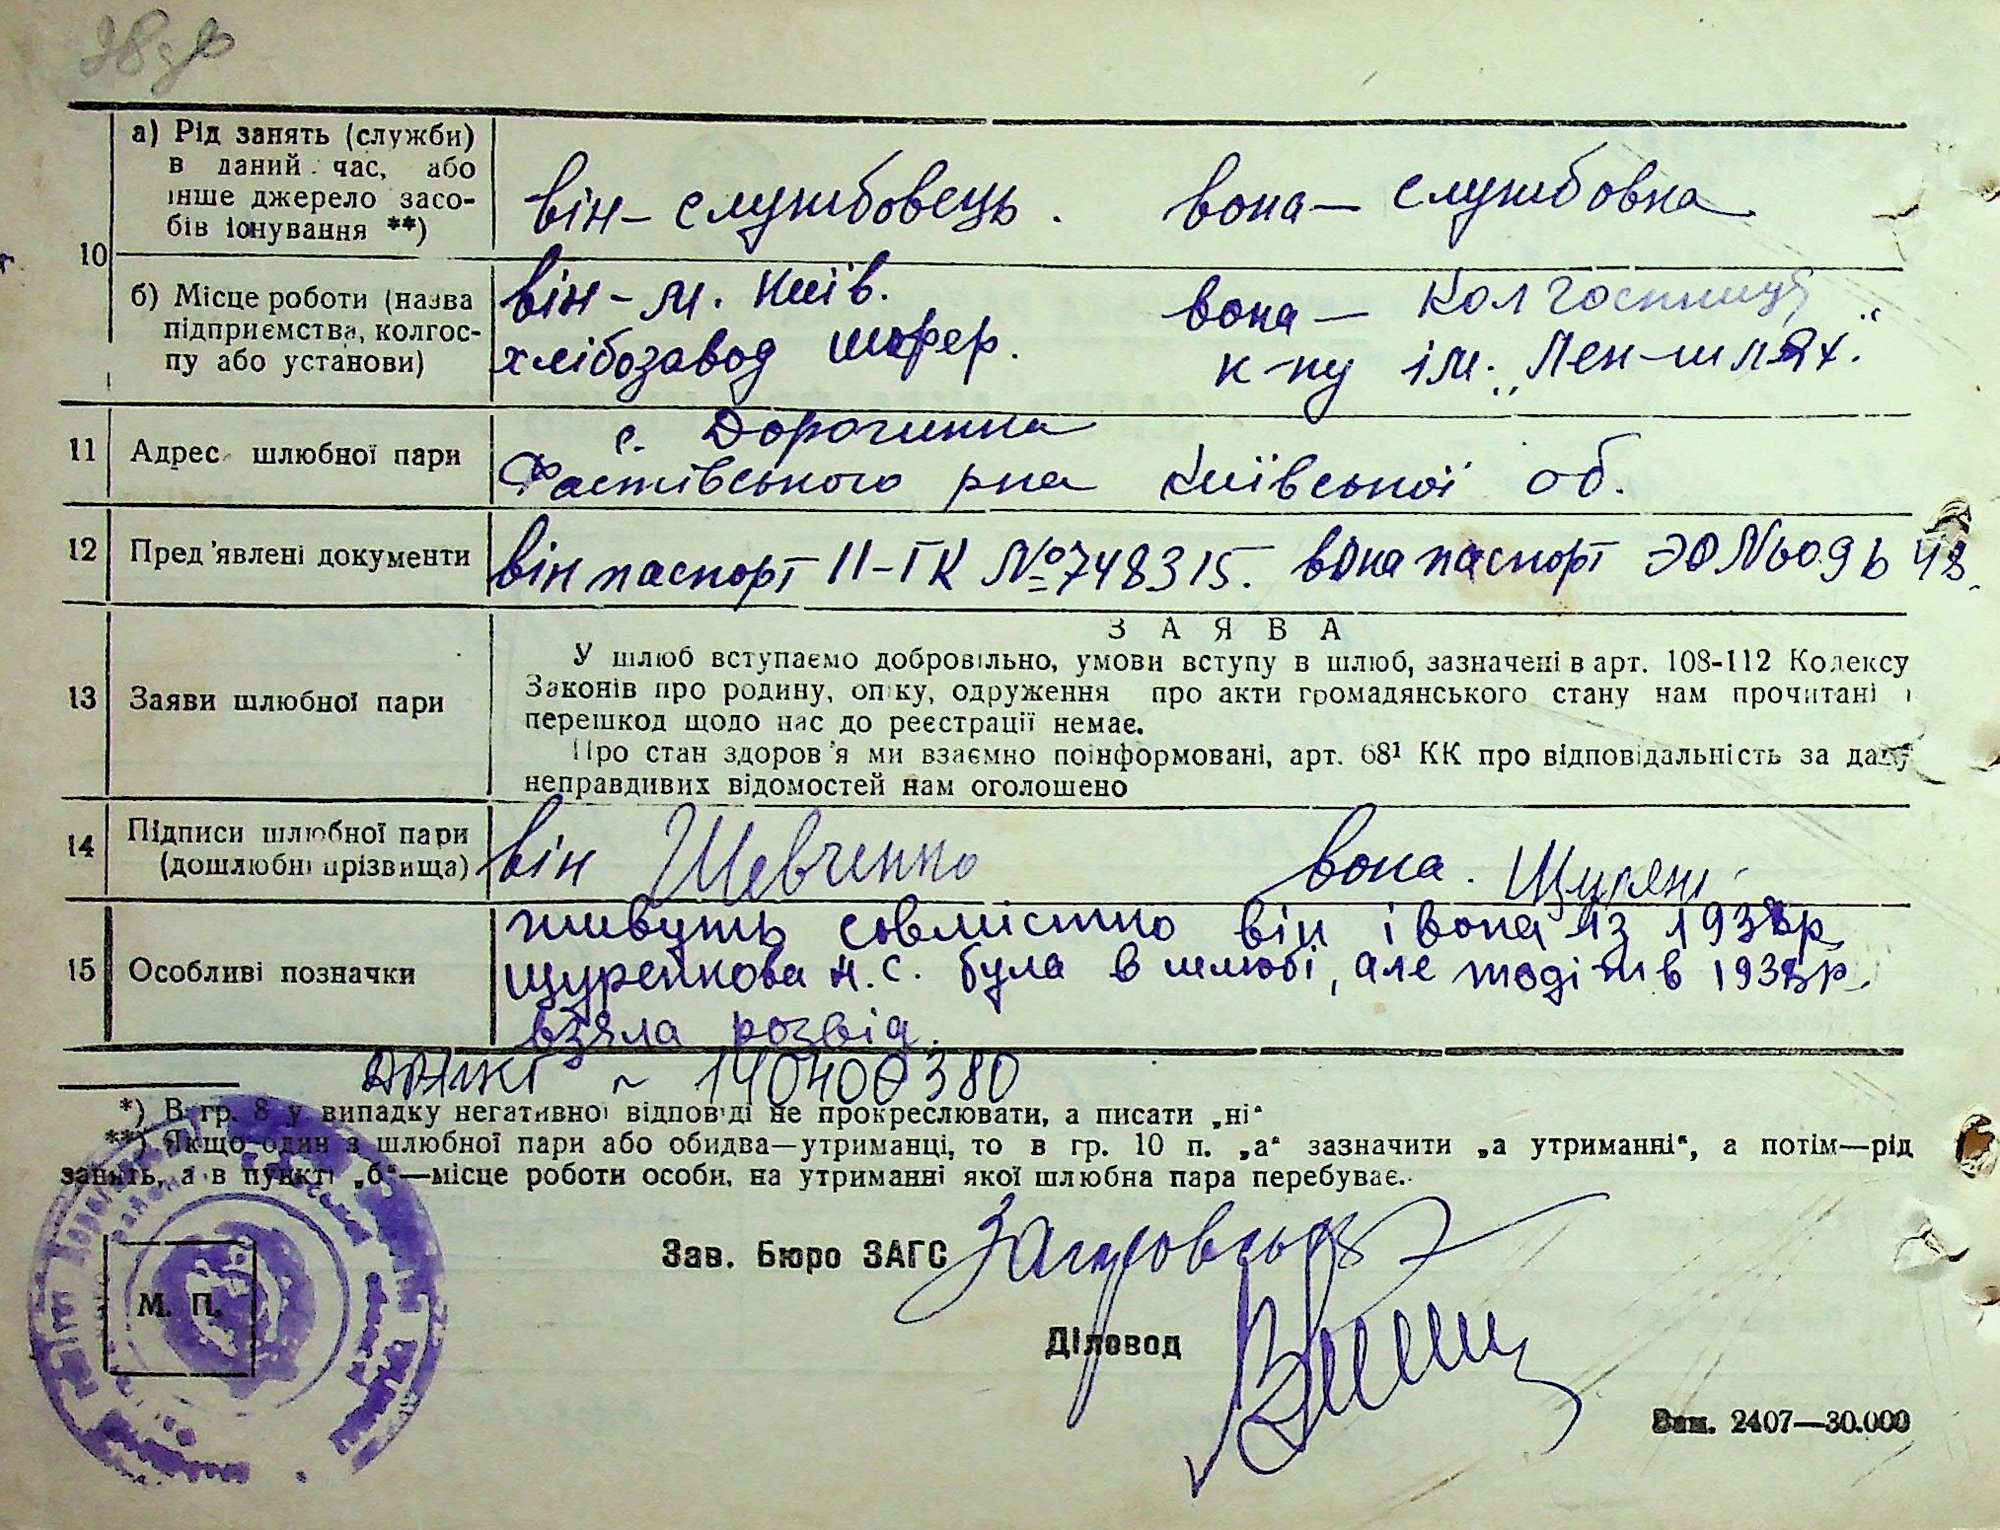 а) Рід занять (служби)
в даний час, або
інше джерело засо-
бів існування **)
він – службовець. вона – службовка
10
б) Місце роботи (назва
підприємства, колгос-
пу або установи)
він – м. Київ. вона – колгоспниця
хлібозавод шофер. к-пу ім. „Лен-шлях."
11 Адрес шлюбної пари
с. Дорогинка
Фастівського р-на Київської об.
12 Пред'явлені документи
він паспорт II-ГК № 748315. вона паспорт ЭЮ №
13 Заяви шлюбної пари
ЗАЯВА
У шлюб вступаємо добровільно, умови вступу в шлюб, зазначені в арт. 108-112 Кодексу
Законів про родину, опіку, одруження про акти громадянського стану нам прочитані і
перешкод щодо нас до реєстрації немає.
Про стан здоров'я ми взаємно поінформовані, арт. 68¹ КК про відповідальність за дачу
неправдивих відомостей нам оголошено
14 Підписи шлюбної пари
(дошлюбні прізвища)
він Шевченко вона.
15 Особливі позначки
живуть совмістно він і вона із
була в шлюбі, але тоді в
взяла розвід.
*) В гр. 8 у випадку негативної відповіді не прокреслювати, а писати „ні"
**) Якщо один з шлюбної пари або обидва—утриманці, то в гр. 10 п. „а" зазначити „а утриманні", а потім—рід
занять, а в пункті „б"—місце роботи особи, на утриманні якої шлюбна пара перебуває.
Зав. Бюро ЗАГС
М. П.
Діловод
Зам. 2407—30.000